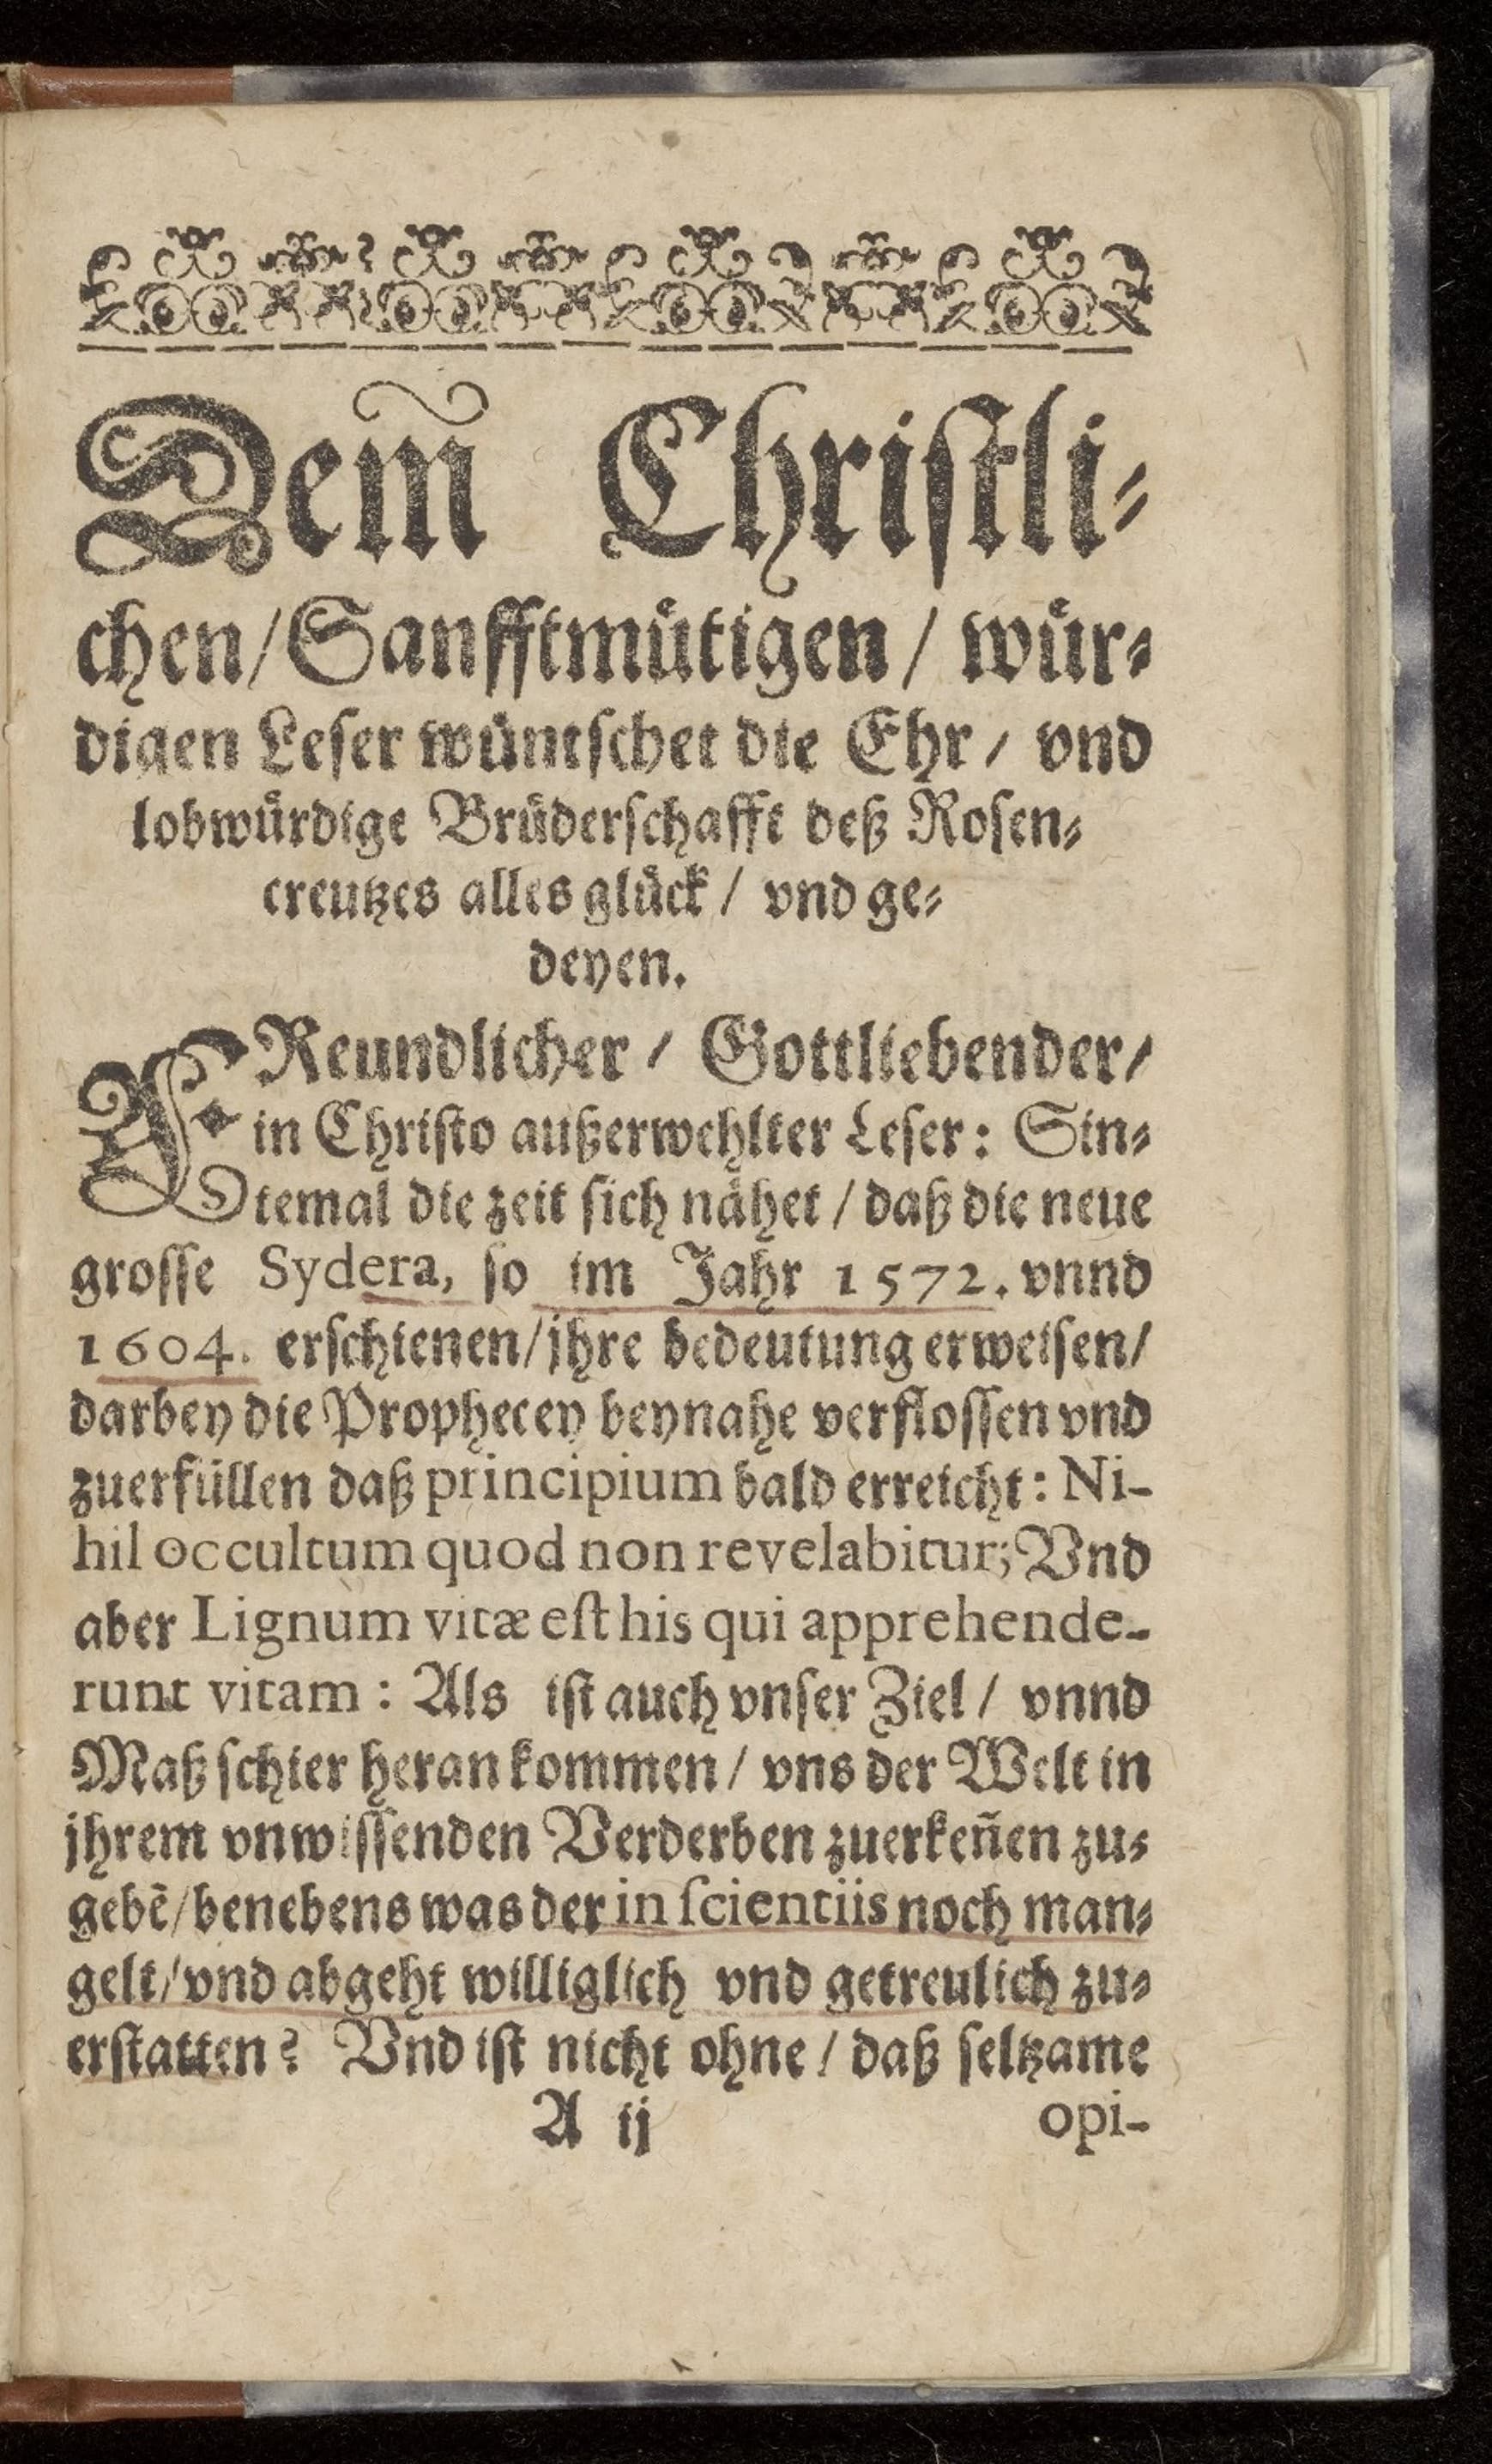 Dem̃ Chriſtli⸗
chen/Sanfftmuͤtigen / wuͤr⸗
digen Leſer wuͤntſchet die Ehr / vnd
lobwuͤrdige Bruͤderſchafft deß Roſen⸗
creutzes alles gluͤck / vnd ge⸗
deyen.
FReundlicher / Gottliebender/
in Chriſto außerwehlter Leſer: Sin⸗
temal die zeit ſich naͤhet / daß die neue
groſſe Sydera, ſo im Jahr 1572. vnnd
1604. erſchienen/jhre bedeutung erweiſen/
darbey die Prophecey beynahe verfloſſen vnd
zuerfüllen daß principium bald erreicht: Ni-
hil occultum quod non revelabitur; Vnd
aber Lignum vitæ eſt his qui apprehende-
runt vitam: Als iſt auch vnſer Ziel / vnnd
Maß ſchier heran kommen / vns der Welt in
jhrem vnwiſſenden Verderben zuerkeñen zu⸗
gebē/benebens was der in ſcientiis noch man⸗
gelt/vnd abgeht williglich vnd getreulich zu⸗
erſtatten? Vnd iſt nicht ohne / daß ſeltzame
A ij opi-